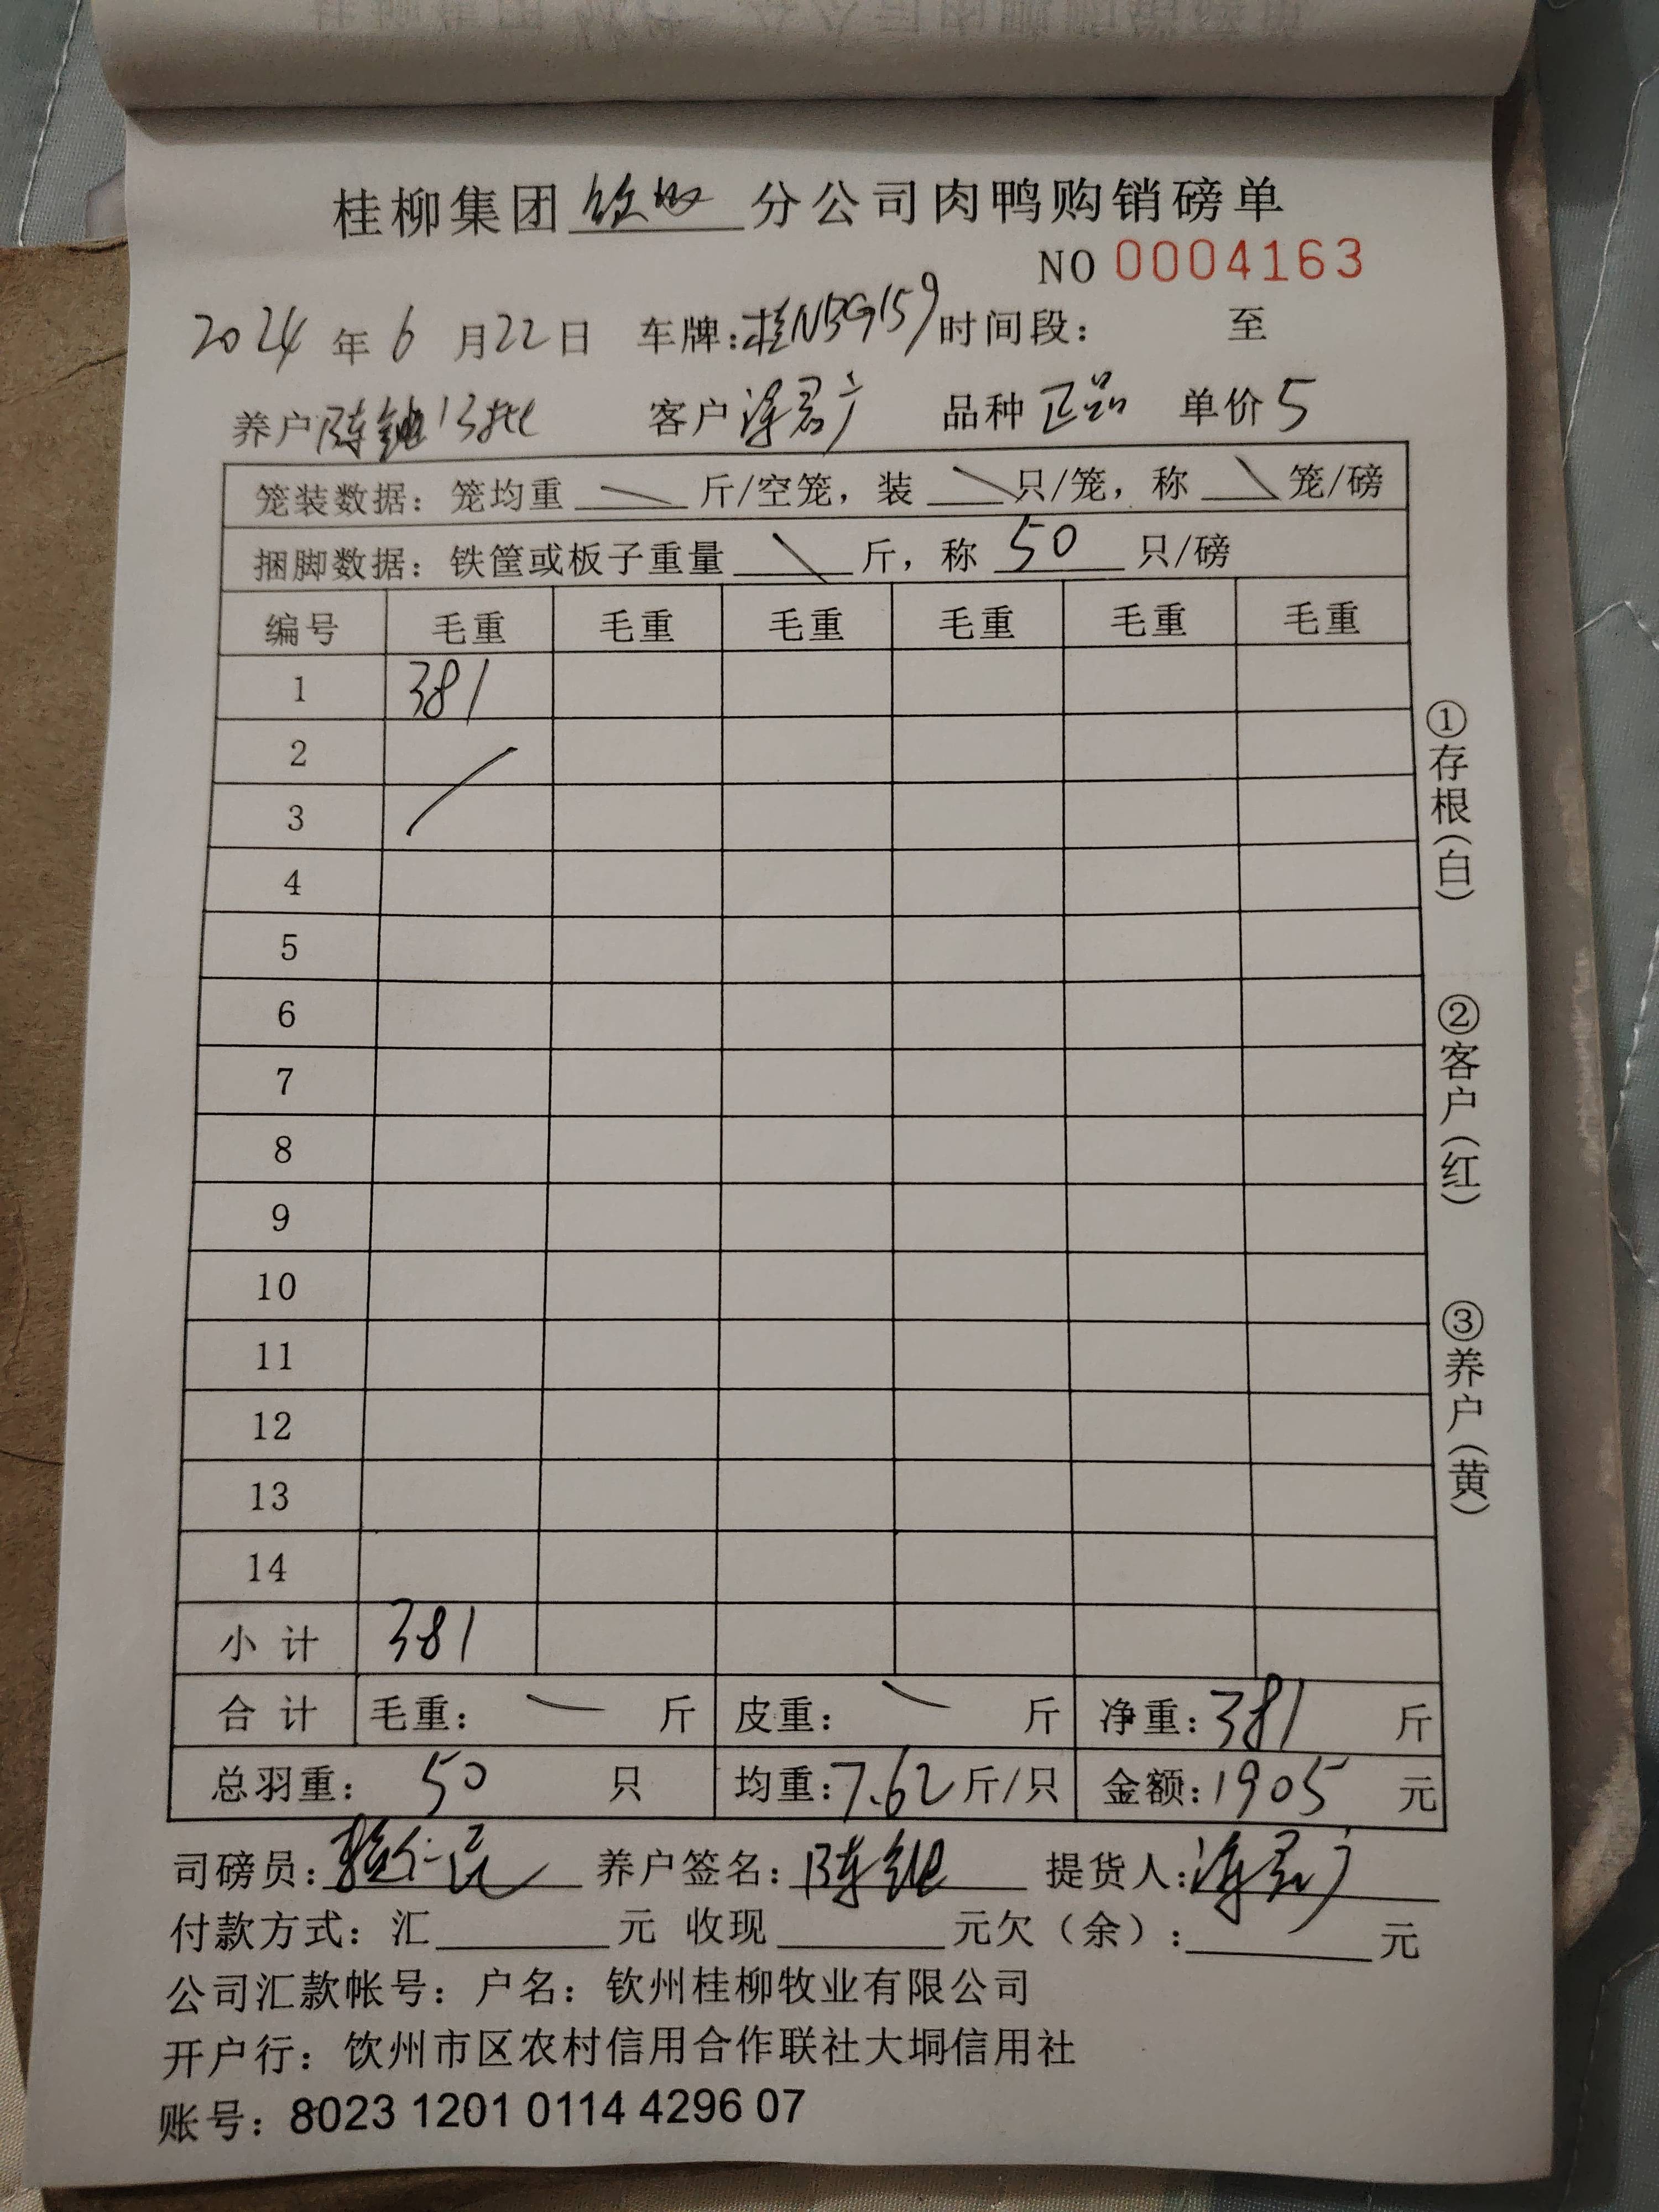 桂柳集团钦州分公司肉鸭购销磅单
NO 0004163
2024年6月22日 车牌:桂N5G159时间段: 至
养户陈 13批 客户 君广 品种正品 单价5
笼装数据: 笼均重 斤/空笼, 装 只/笼, 称 笼/磅
捆脚数据: 铁筐或板子重量 斤, 称 50 只/磅
编号 毛重 毛重 毛重 毛重 毛重 毛重
1 381
2
3
4
5
6
7
8
9
10
11
12
13
14
小计 381
合计 毛重: 斤 皮重: 斤 净重: 381 斤
总羽重: 50 只 均重: 7.62 斤/只 金额: 1905 元
司磅员: 养户签名: 陈 提货人: 君广
付款方式: 汇 元 收现 元欠(余): 元
公司汇款帐号: 户名: 钦州桂柳牧业有限公司
开户行: 饮州市区农村信用合作联社大垌信用社
账号: 8023 1201 0114 4296 07
①存根(白)
②客户(红)
③养户(黄)